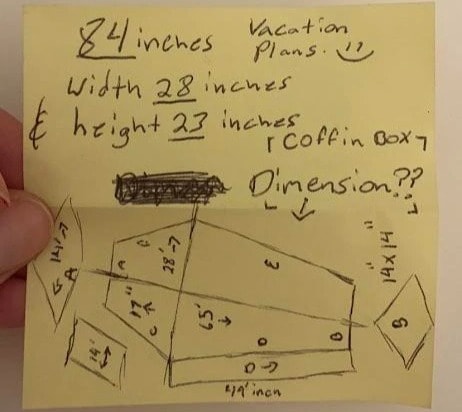 84 inches Vacation Plans.
Width 28 inches
& height 23 inches
⌈Coffin Box⌉
Dimension??
14'
A
14'
A
E
28'
17"
C
65'
E
O
B
D
49' inch
14x14"
B